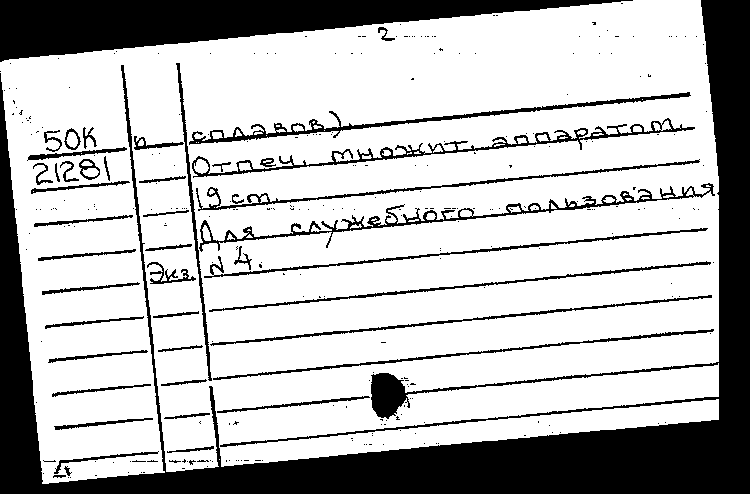 2
50К п сплавов).
21281 Отпеч. множит. аппаратом.
19 ст.
Для служебного пользования.
Экз. N 4.
4